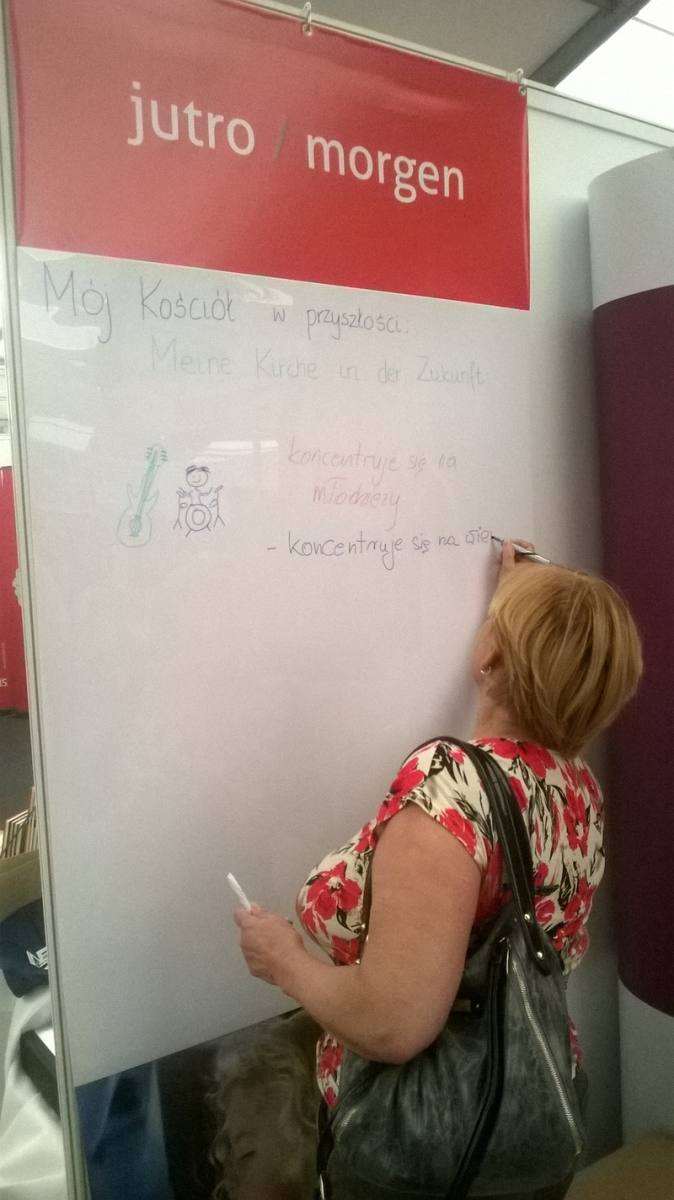 jutro / morgen
Mój Kościół w przyszłości:
Meine Kirche in der Zukunft
koncentruje się na
młodzieży
- koncentruje się na